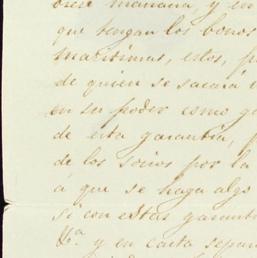 mañana, y en
que tengan los bonos
maritimas, estos, p
de quien se sacará
en su poder como g
de esta garantía,
de los socios por la
á que se haga algo
si con estas garant
Va. y en carta separa